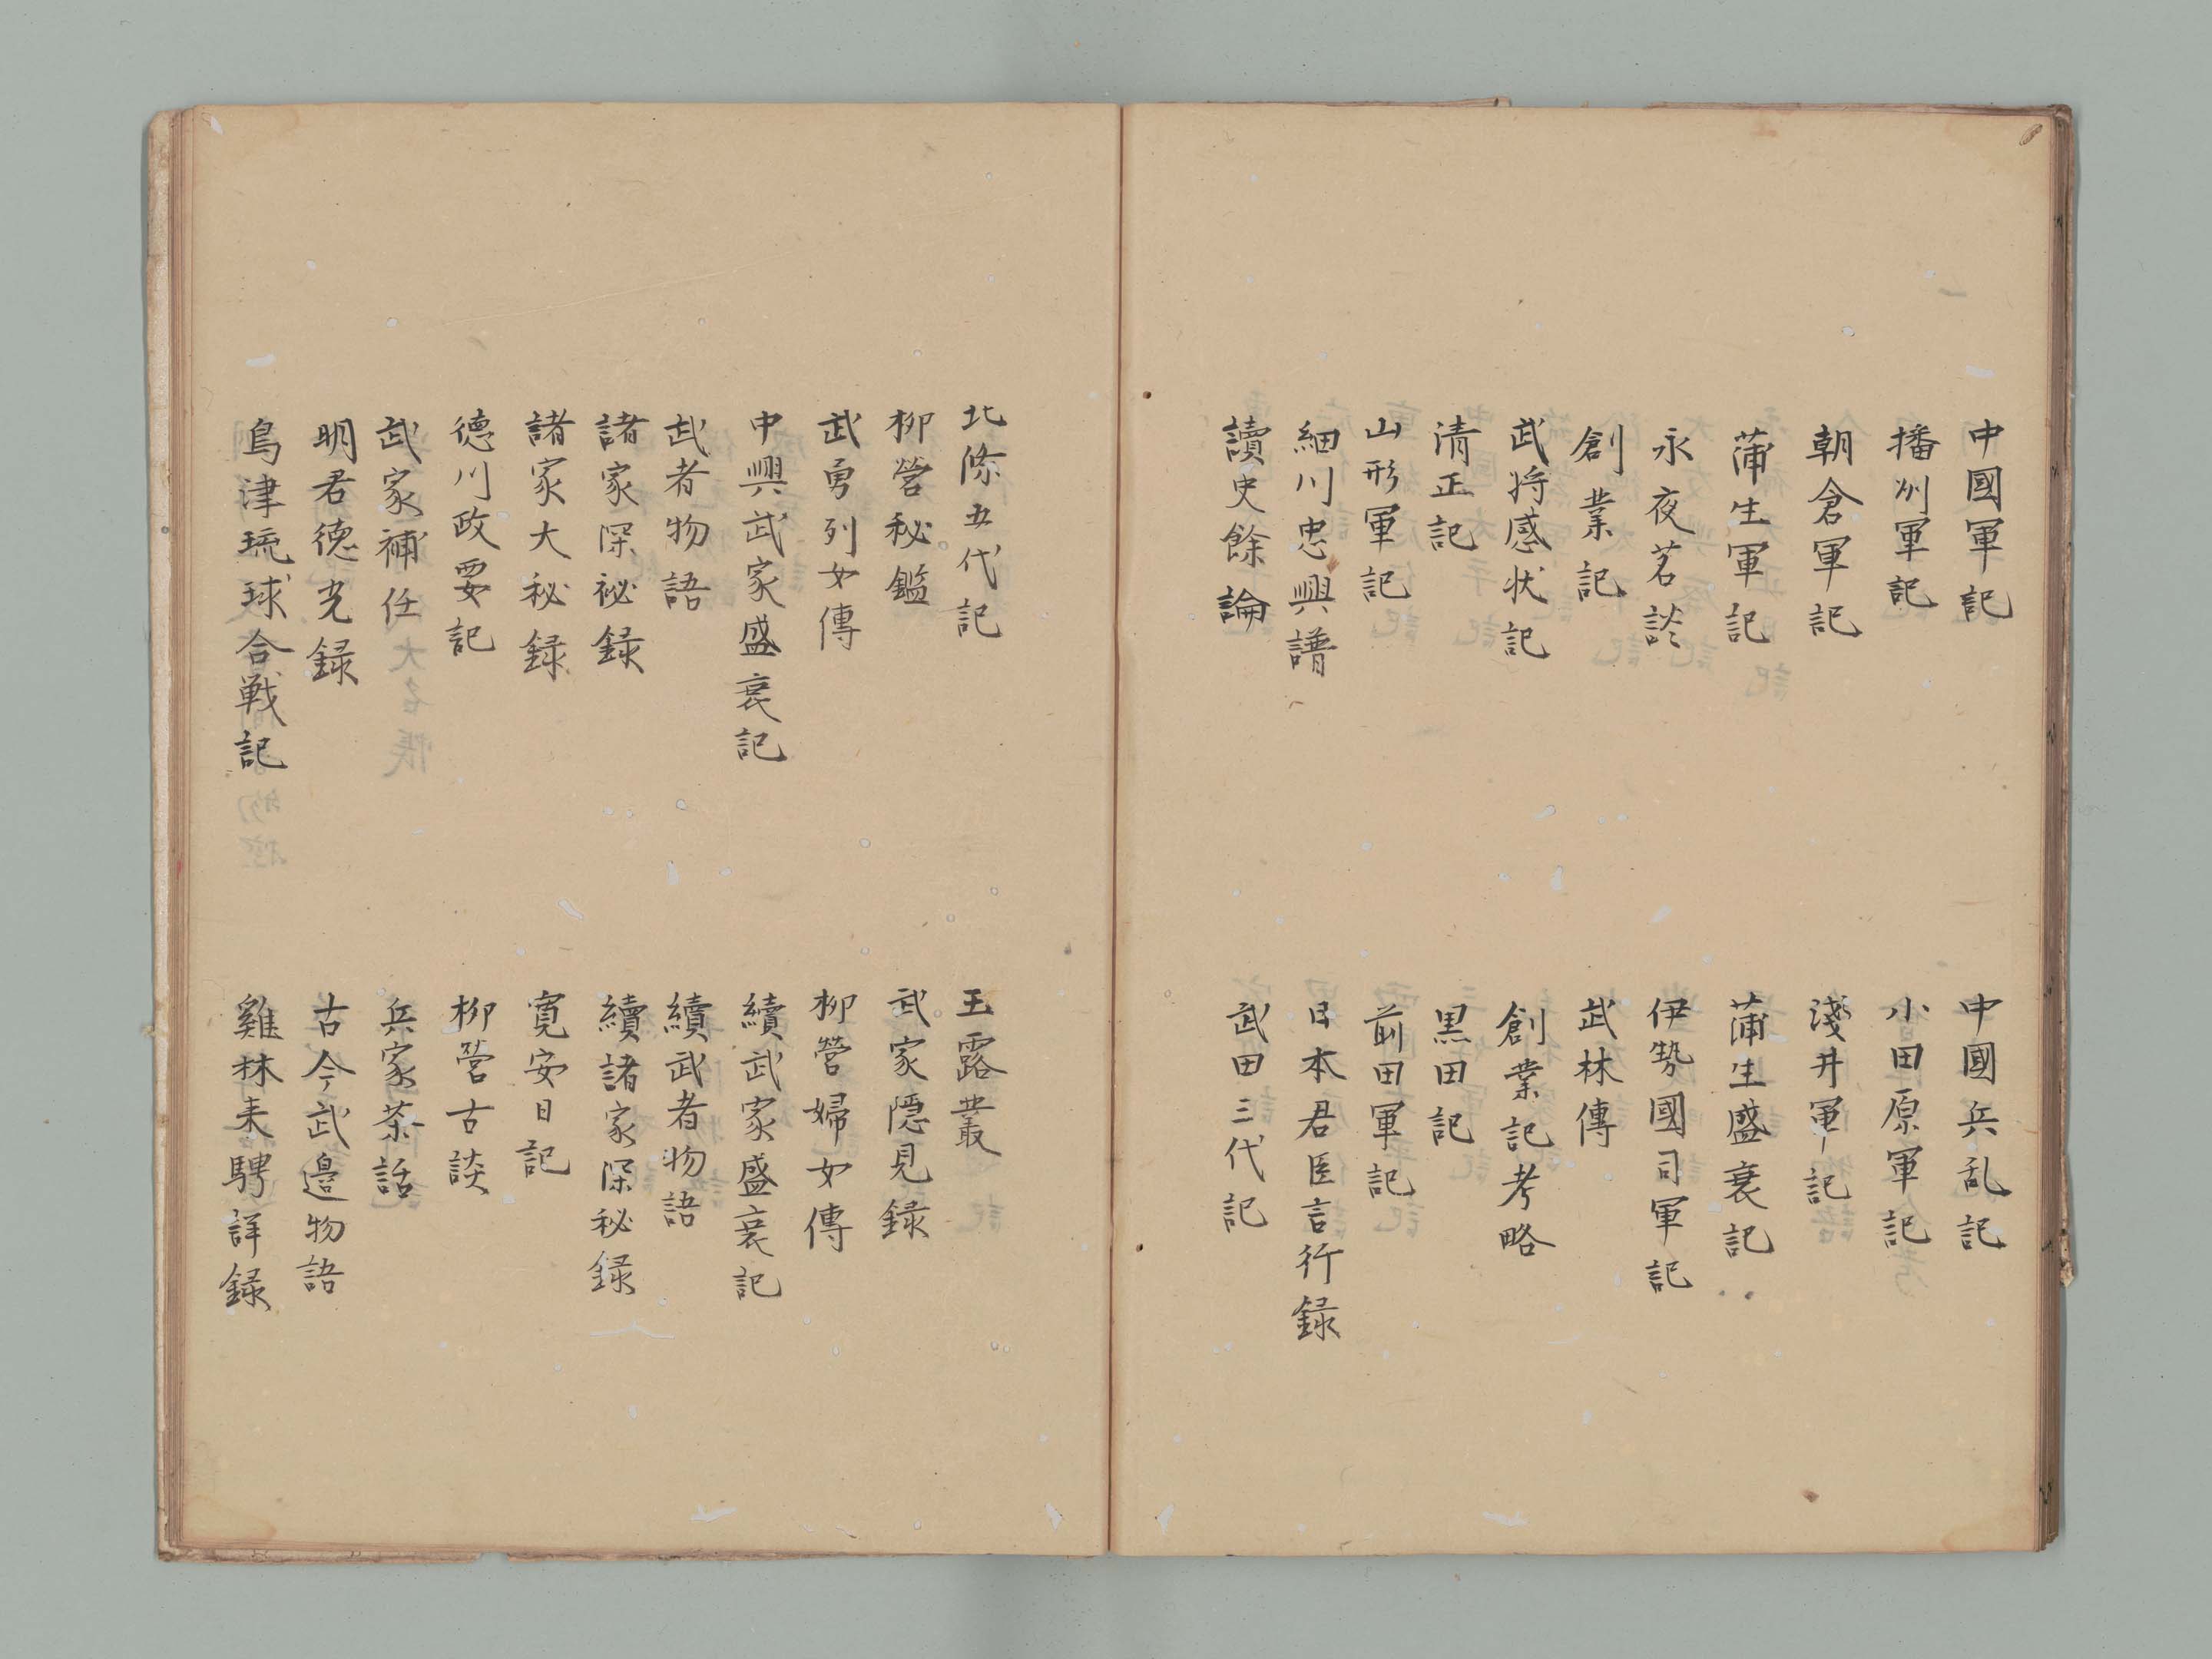 中國軍記
中國兵乱記
播州軍記
小田原軍記
朝倉軍記
淺井軍記
蒲生軍記
蒲生盛衰記
永夜茗談
伊勢國司軍記
創業記
武林傳
武将感状記
創業記考略
清正記
黒田記
山形軍記
前田軍記
細川忠興譜
日本君臣言行録
讀史餘論
武田三代記
北條五代記
玉露叢
柳營秘鑑
武家隠見録
武勇列女傳
柳營婦女傳
中興武家盛衰記
續武家盛衰記
武者物語
續武者物語
諸家深祕録
續諸家深秘録
諸家大秘録
寛安日記
德川政要記
柳營古談
武家補任
兵家茶話
明君德光録
古今武邊物語
島津琉球合戦記
雞林来聘詳録